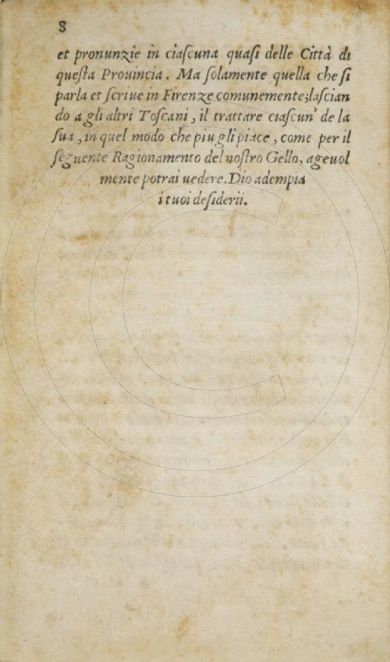 8
et pronunzie in ciaſcuna quaſi delle Città di
queſta Prouincia. Ma ſolamente quella che ſi
parla et ſcriue in Firenze comunemente; laſcian
do a gli altri Toſcani, il trattare ciaſcun' de la
ſua, in quel modo che piu gli piace, come per il
ſeguente Ragionamento del noſtro Gello, ageuol
mente potrai uedere. Dio adempia
i tuoi deſiderii.